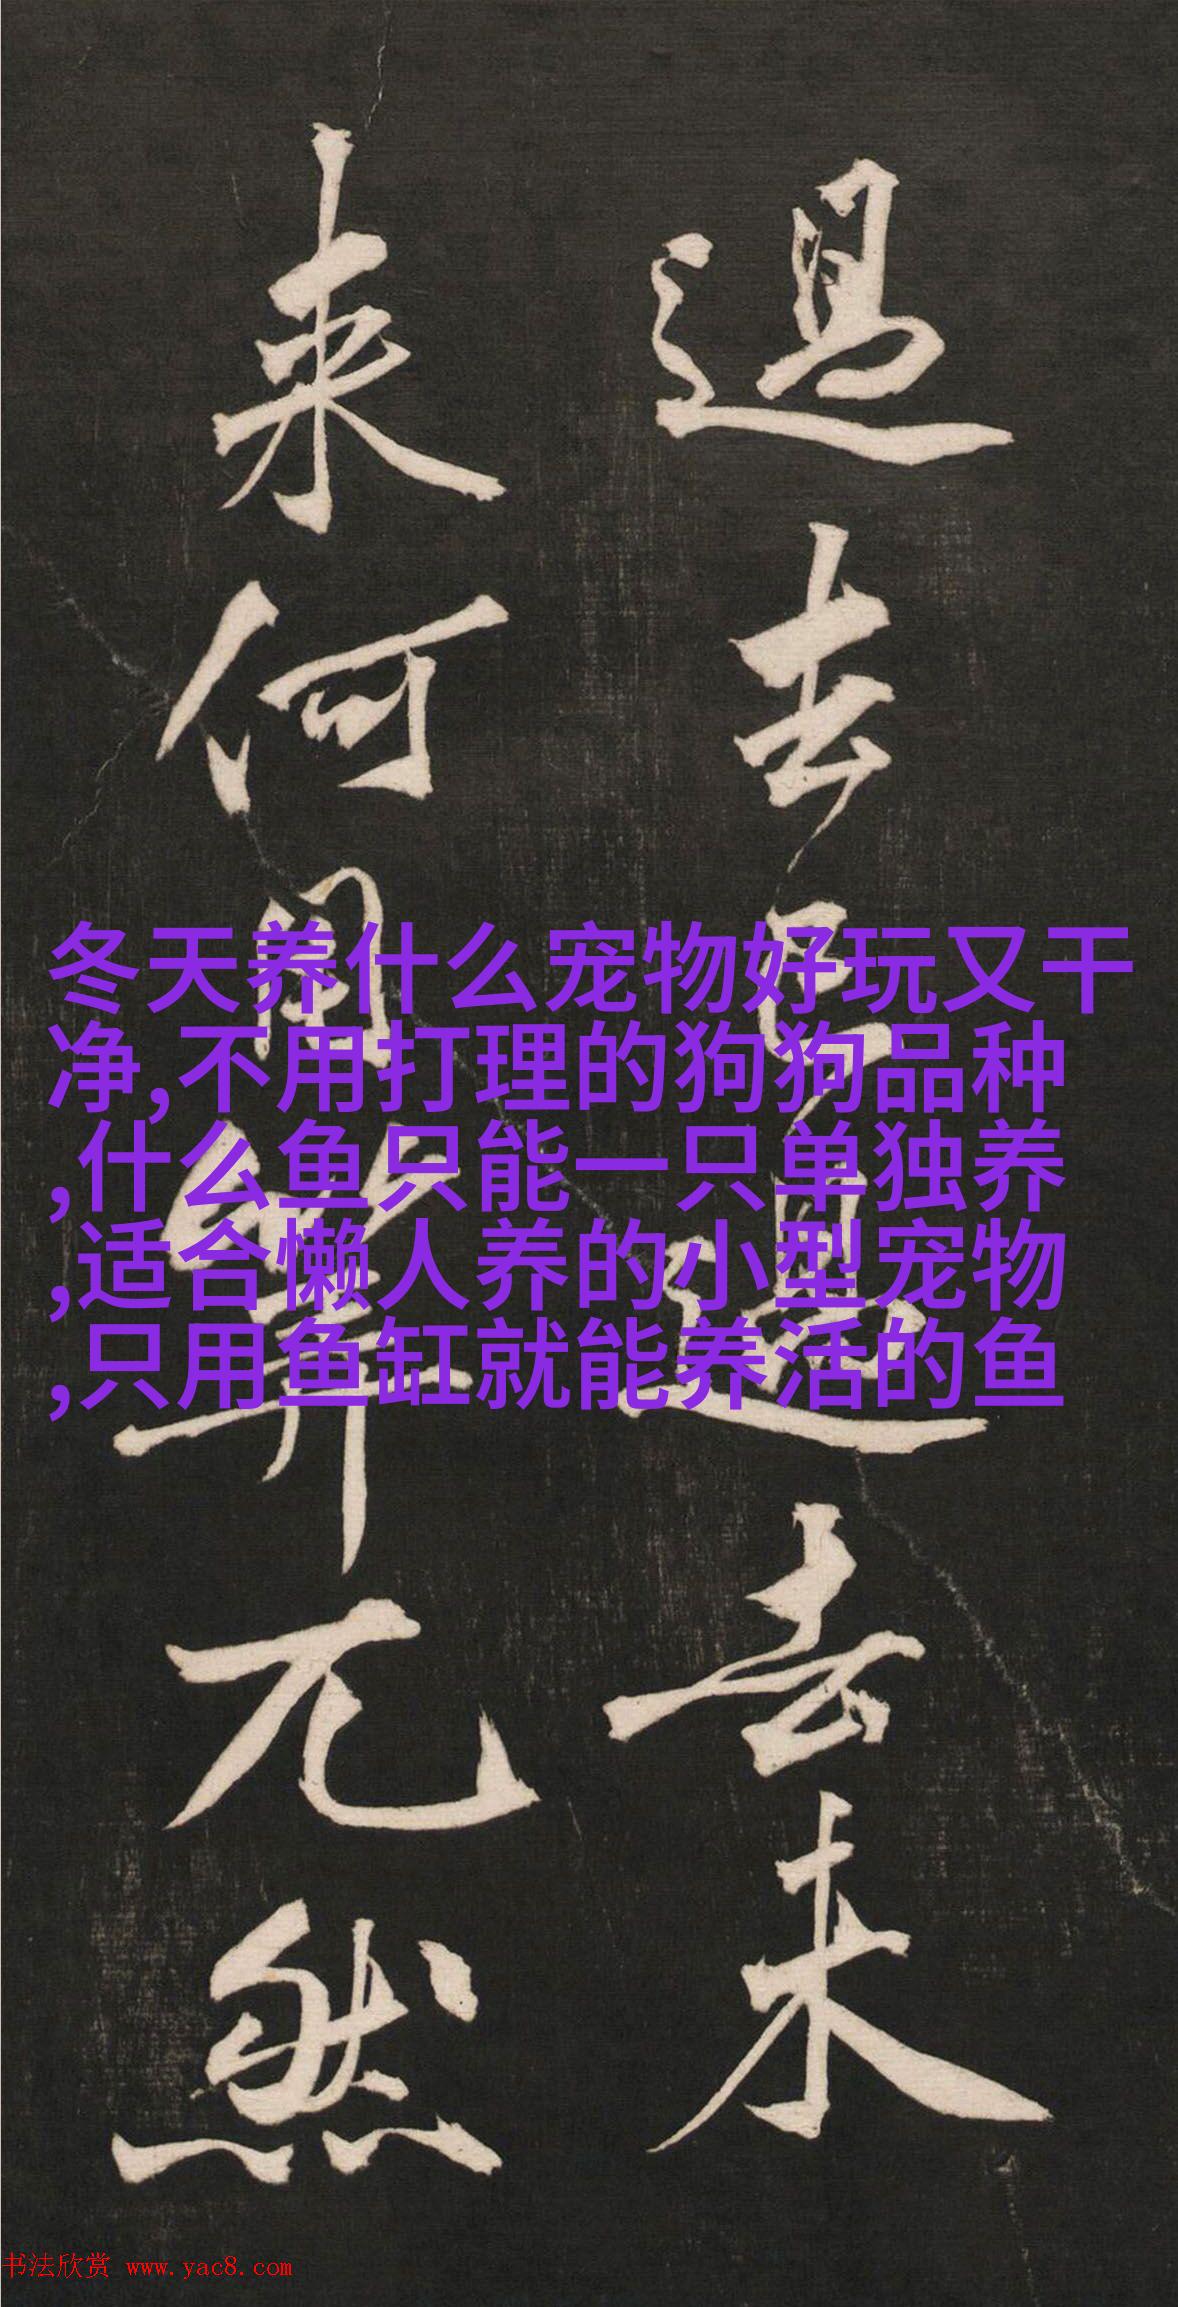 過去已過去未
来何用算兀然
冬天养什么宠物好玩又干
净,不用打理的狗狗品种
,什么鱼只能一只单独养
,适合懒人养的小型宠物
,只用鱼缸就能养活的鱼
书法欣赏 www.yac8.com